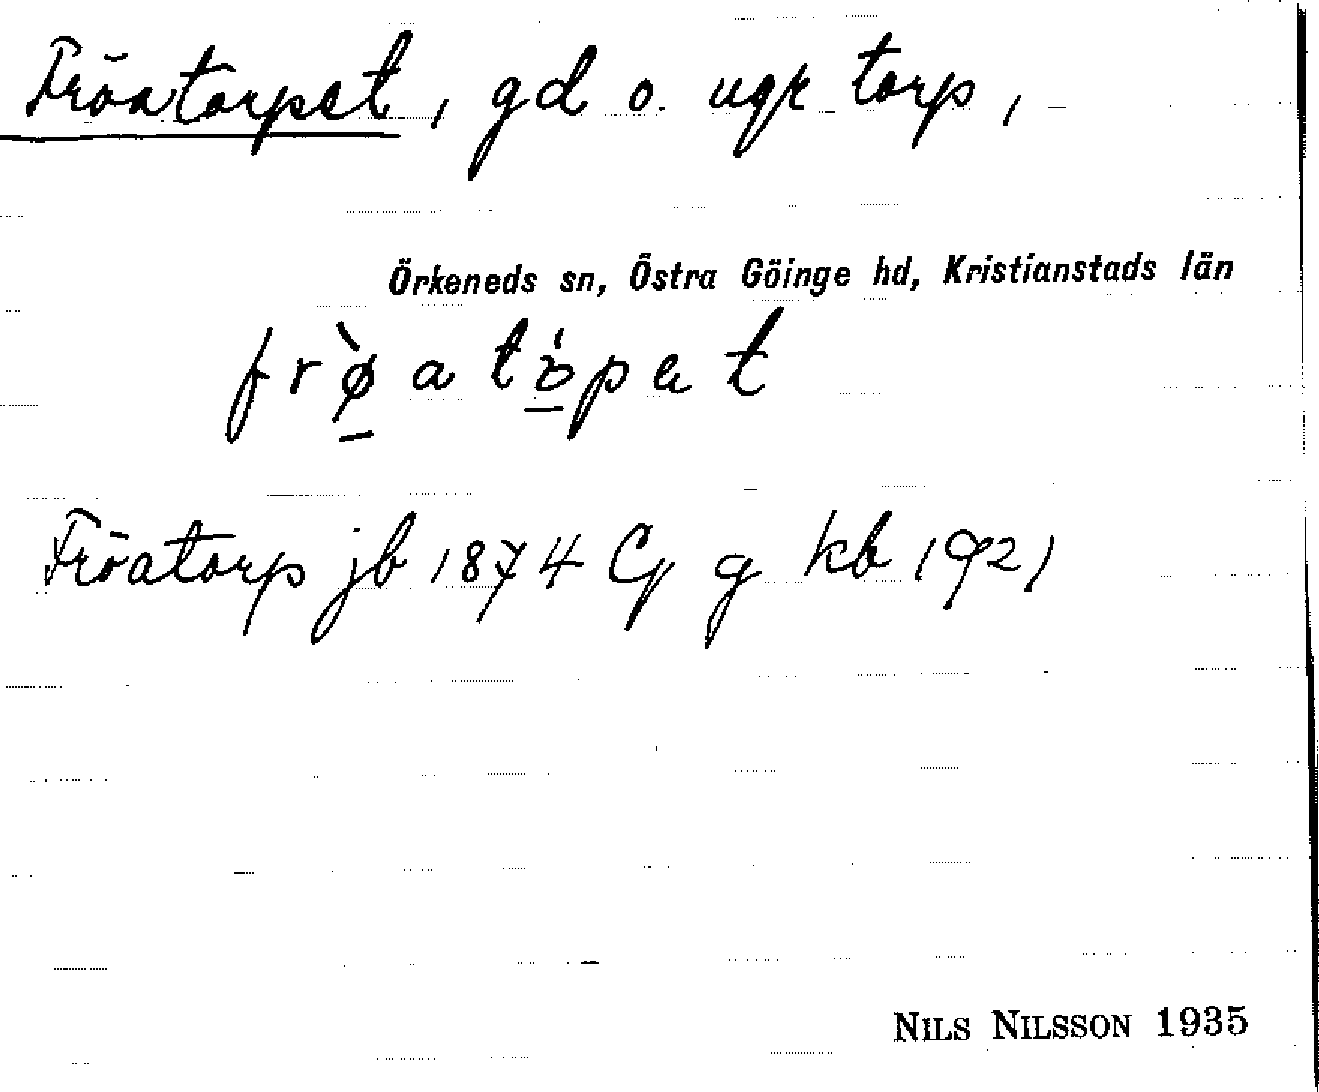 Fröatorpet, gd o. ugr torp,
Örkeneds sn, Östra Göinge hd, Kristianstads län
frø̀atȯ́pet
Fröatorp jb 1874 Cy g kb 1921
NILS NILSSON 1935